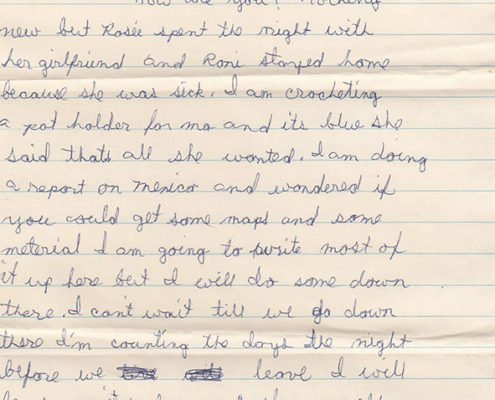 how are you? Nothing
new but Rosie spent the night with
her girlfriend and Roni stayed home
because she was sick. I am crocheting
a pot holder for ma and its blue she
said thats all she wanted. I am doing
a report on Mexico and wondered if
you could get some maps and some
material I am going to write most of
it up here but I will do some down
there. I can't wait till we go down
there I'm counting the days the night
before we leave I will